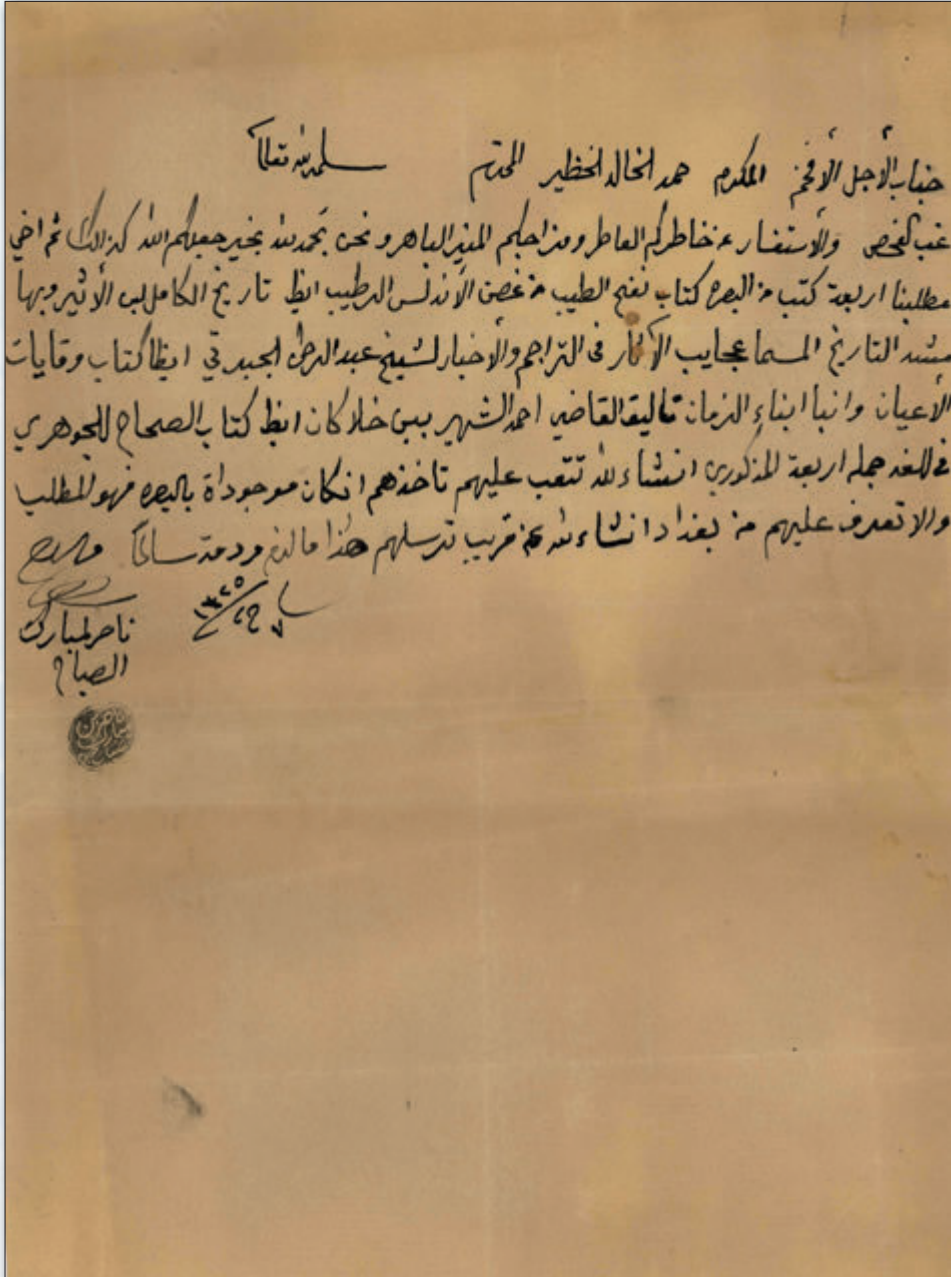 جناب الأجل الأفخم المكرم حمد الخالد الخظير المحترم سلمه الله تعالى
غب الفحص والأستفسار عن خاطركم العاطر ومزاجكم المنير الباهر ونحن بحمد الله بخير جعلكم الله كذالك ثم اخي
مطلبنا اربعة كتب من البصره كتاب نفح الطيب من غصن الأندلس الرطيب ايظ تاريخ الكامل لبن الأثير وبها
مشه التاريخ المسما عجايب الأثار في التراجم والأخبار لشيخ عبد الرحمن الجبرتي ايظا كتاب وفايات
الأعيان وانبا ابناء الزمان تاليف القاضي احمد الشهير ببن خلاكان ايظ كتاب الصحاح للجوهري
في اللغه جملة اربعة المذكورين انشاء الله تتعب عليهم تاخذهم انكان موجوداة بالبصره فهو المطلب
والا تعرف عليهم من بغداد انشاء الله عن قريب ترسلهم هذا ما لزم ودمت سالما
٧ ١٣٢٥
ناصر المبارك
الصباح